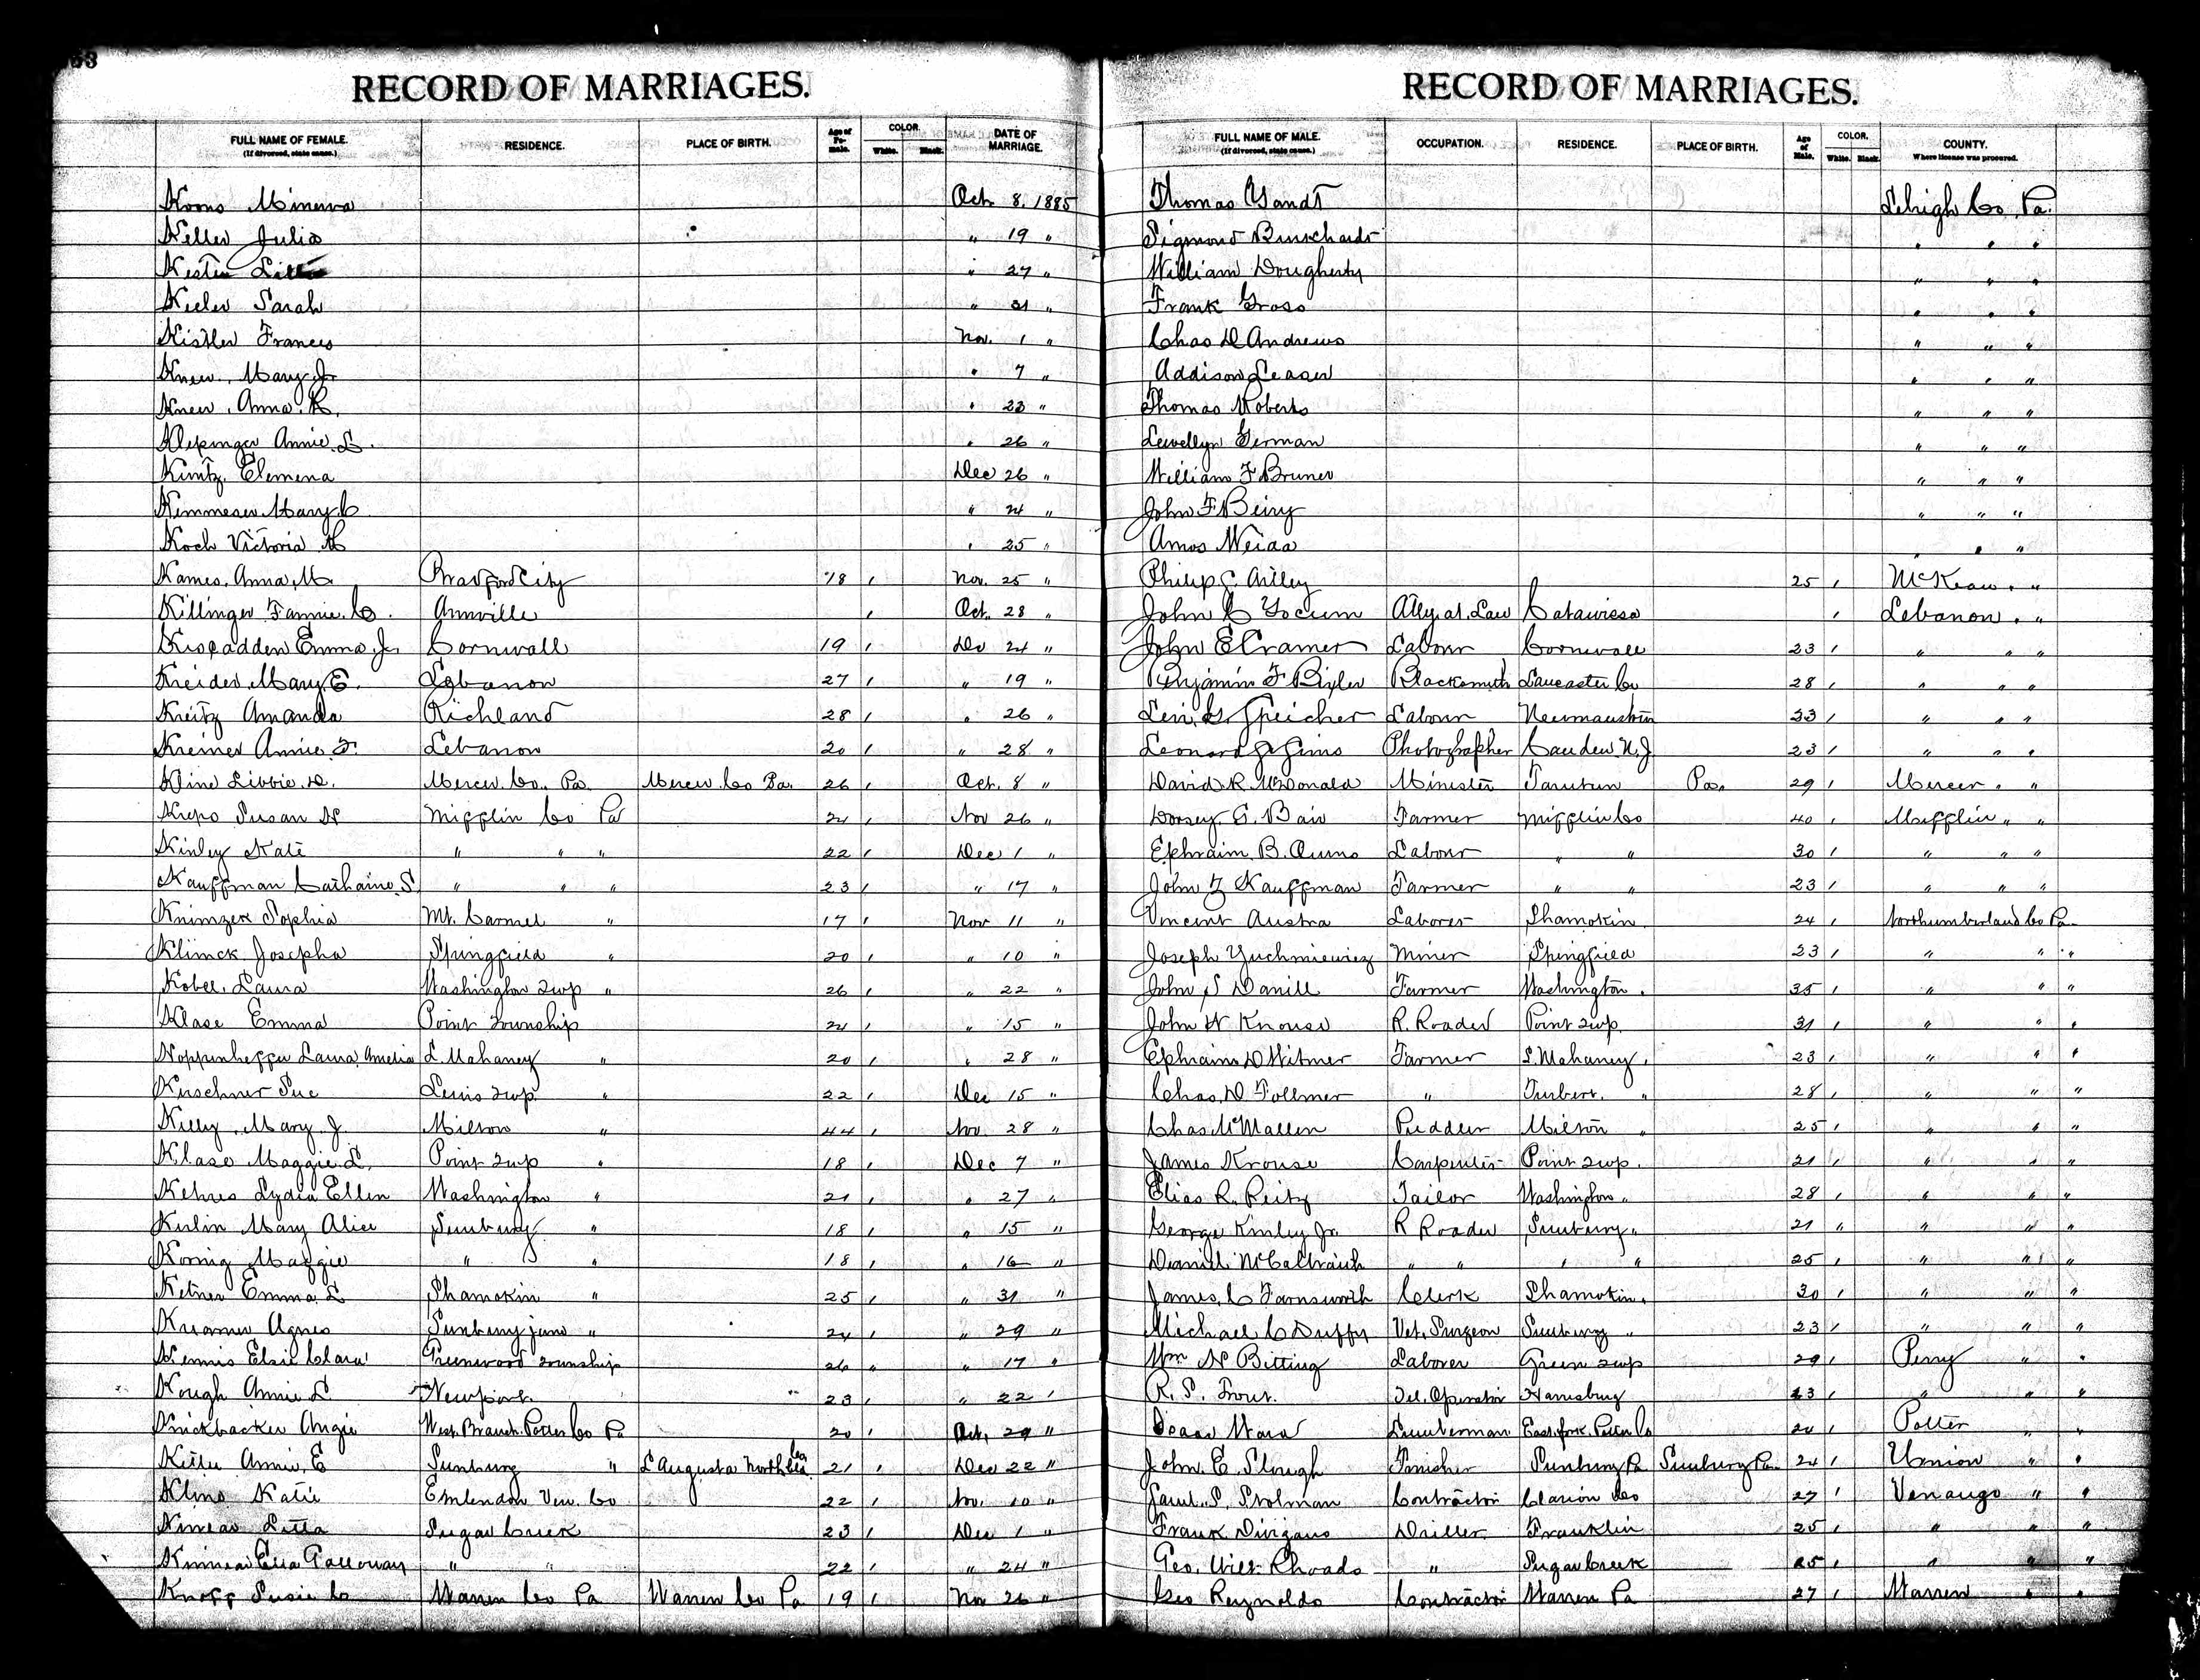 53
RECORD OF MARRIAGES. RECORD OF MARRIAGES.
FULL NAME OF FEMALE. (If divorced, state cause.) RESIDENCE. PLACE OF BIRTH. Age of Female. COLOR. White. Black. DATE OF MARRIAGE. FULL NAME OF MALE. (If divorced, state cause.) OCCUPATION. RESIDENCE. PLACE OF BIRTH. Age of Male. COLOR. White. Black. COUNTY. Where license was procured.
Koons Minerva Oct. 8, 1885 Thomas Gandt Lehigh Co. Pa.
Keller Julia " 19 " Sigmond " " "
" 27 " William Dougherty " " "
Keeler Sarah " 31 " Frank Gross " " "
Kistler Frances Nov. 1 " Chas D Andrews " " "
Knew, Mary J. " 7 " Addison Leaser " " "
Knew, Anna R. " 23 " Thomas Roberts " " "
Klepinger Annie L. " 26 " Lewellyn German " " "
Kuntz Elemena Dec 26 " William F Bruner " " "
Kemmerer Mary C " 24 " John F Beiry " " "
Koch Victoria M " 25 " Amos Weiaa " "
Kames, Anna M. Bradford City 18 1 Nov. 25 " Philip C. Ailley 25 1 McKean " "
Killinger Fannie C. Annville 1 Oct. 28 " John C Yocum Atty. at. Law Catawissa 1 Lebanon " "
Emma J. Cornwall 19 1 De 24 " John E Cramer Labour Cornwall 23 1 " " "
Kreider Mary E. Lebanon 27 1 " 19 " Benjamin F Bixler Blacksmith Lancaster Co 28 1 " " "
Kreitz Amanda Richland 28 1 " 26 " Levi G. Speicher Labour 33 1 " " "
Kreiner Annie F. Lebanon 20 1 " 28 " Leonard Photographer Camden N.J 23 1 " " "
Kline Libbie D. Mercer. Co. Pa. Mercer. Co Pa. 26 1 Oct. 8 " David R. McDonald Minister Tarutun Pa. 29 1 Mercer " "
Kreps Susan N Mifflin Co Pa 24 1 Nov 26 " Dorsey E. Bair Farmer Mifflin Co 40 1 Mifflin " "
Kinley Kate " " " 22 1 Dec 1 " Ephraim B. Labour " " 30 1 " " "
Kauffman Catharine S. " " " 23 1 " 17 " John Z Kauffman Farmer " " 23 1 " " "
Sophia Mt. Carmel " 17 1 Nov 11 " Vincent Austra Laborer Shamokin 24 1 Northumberland Co Pa
Klimck Josepha Springfield " 20 1 " 10 " Joseph Yuchmiewicz Miner Springfield 23 1 " " "
Kobel, Laura Washington Twp " 26 1 " 22 " John S Daniel Farmer Washington 35 1 " " "
Klase Emma Point Township 24 1 " 15 " John W Knouse R. Roader Point Twp. 31 1 " " "
Koppenheffer Laura Amelia L. Mahaney " 20 1 " 28 " Ephraim D Witmer Farmer L. Mahaney 23 1 " " "
Kirschner Sue Lewis Twp. " 22 1 Dec 15 " Chas. D Follmer " Turbert. " 28 1 " " "
Kelly, Mary J. Milton " 44 1 Nov. 28 " Chas McMallen Puddler Milton " 25 1 " " "
Klase Maggie L. Point Twp " 18 1 Dec 7 " James Krouse Carpenter Point Twp. 21 1 " " "
Kehres Lydia Ellen Washington " 21 1 " 27 " Elias R. Reitz Tailor Washington " 28 1 " " "
Kerlin Mary Alice Sunbury " 18 1 " 15 " George Kinley Jr. R Roader Sunbury " 21 " " " "
Konig Maggie " " 18 1 " 16 " Daniel " " " " 25 1 " " "
Ketner Emma L Shamokin " 25 1 " 31 " James C Farnsworth Clerk Shamokin. 30 1 " " "
Kramer Agnes Sunbury junc " 24 1 " 29 " Michael C Duffy Vet. Surgeon Sunbury " 23 1 " " "
Kennis Elsie Clara Greenwood Township 26 " " 17 " Wm N Bitting Laborer Green Twp 29 1 Perry " "
Kough Annie L Newport. " 23 1 " 22 1 R. S. Trout. Tel. Operator Harrisburg 23 1 " " "
Knickbacker Angie West. Branch. Potter Co Pa 20 1 Oct. 29 " Isaac Ward Lumberman East. fork. Potter Co 24 1 Potter " "
Annie E Sunbury " L Augusta North Co 21 1 Dec 22 " John. E. Slough Finisher Sunbury Pa Sunbury Pa 24 1 Union " "
Kline Katie Emlendon Ven. Co 22 1 Nov. 10 " Saml. S. Stolman Contractor Clarion Co 27 1 Venango " "
Kinnear Letta Sugar Creek 23 1 Dec 1 " Frank Driller Franklin 25 1 " " "
Kinnear Ella Galloway " " 22 1 " 24 " Geo. Will Rhoads " Sugar Creek 25 1 " " "
Knoff Susie C Warren Co Pa Warren Co Pa 19 1 Nov 26 " Geo Reynolds Contractor Warren Pa 27 1 Warren " "